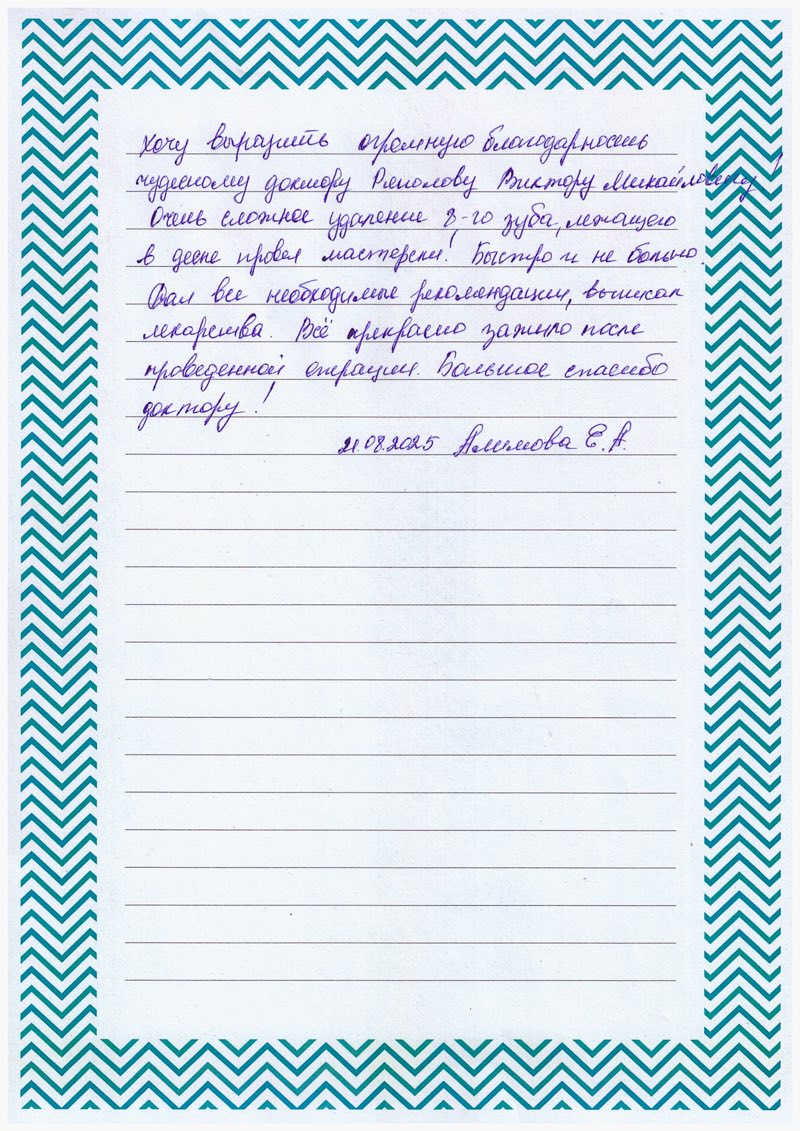 Хочу выразить огромную благодарность
чудесному доктору Реполову Виктору Михайловичу!
Очень сложное удаление 8-го зуба, лежащего
в десне провел мастерски! Быстро и не больно.
Дал все необходимые рекомендации, выписал
лекарства. Всё прекрасно зажило после
проведенной операции. Большое спасибо
доктору!
21.08.2025 Алимова Е.А.